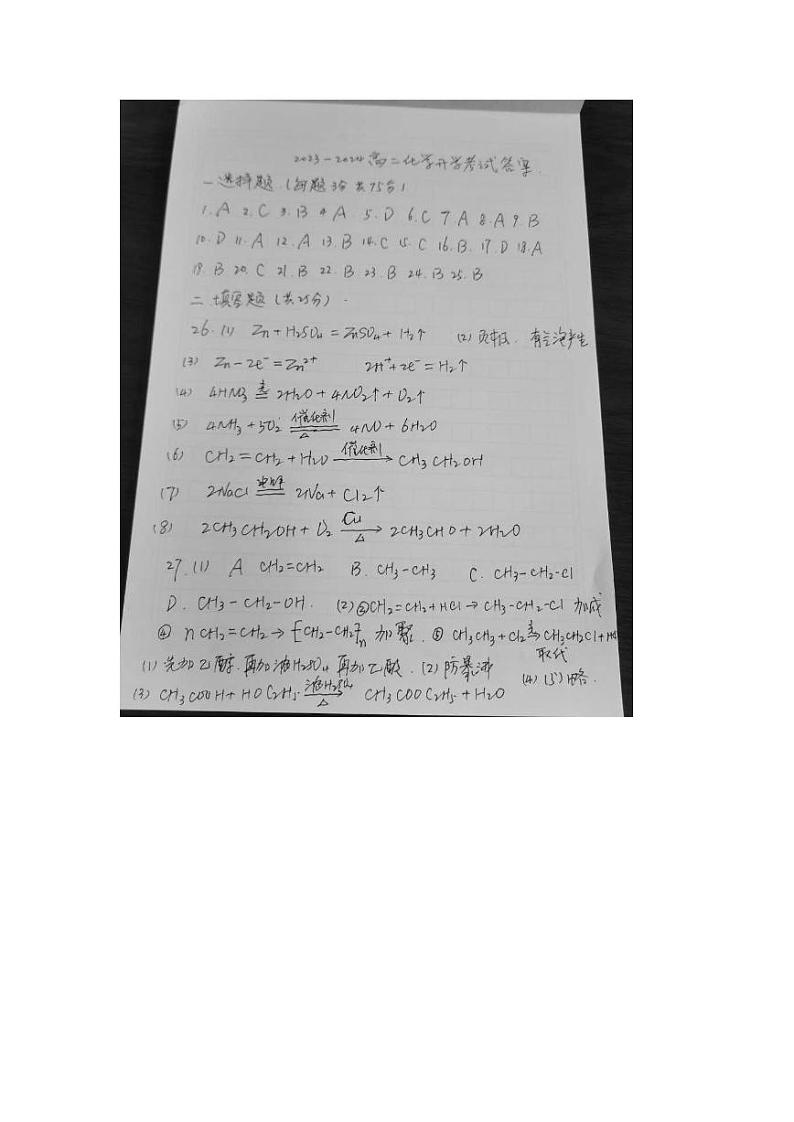 2023-2024高二化学开学考试答案.
一选择题.(每题3分共75分)
1.A 2.C 3.B 4.A 5.D 6.C 7.A 8.A 9.B
10.D 11.A 12.A 13.B 14.C 15.C 16.B. 17.D 18.A
19.B 20.C 21.B 22.B 23.B 24.B 25.B
二 填空题(共25分).
26.(1) Zn+H2SO4=ZnSO4+H2↑ (2) 负极. 有气泡产生
(3) Zn-2e⁻=Zn²⁺ 2H⁺+2e⁻=H2↑
(4) 4HNO3 ≜ 2H2O+4NO2↑+O2↑
(5) 4NH3+5O2 催化剂 △ 4NO+6H2O
(6) CH2=CH2+H2O 催化剂→ CH3CH2OH
(7) 2NaCl 电解 2Na+Cl2↑
(8) 2CH3CH2OH+O2 Cu △→ 2CH3CHO+2H2O
27.(1) A CH2=CH2 B. CH3-CH3 C. CH3-CH2-Cl
D. CH3-CH2-OH. (2) CH2=CH2+HCl→CH3-CH2-Cl 加成
④ nCH2=CH2→[CH2-CH2]n 加聚. CH3CH3+Cl2→CH3CH2Cl+HCl
取代
(1) 先加乙醇.再加浓H2SO4再加乙酸.(2)防暴沸
(4)(5)略.
(3) CH3COOH+HOC2H5 浓H2SO4 △→ CH3COOC2H5+H2O